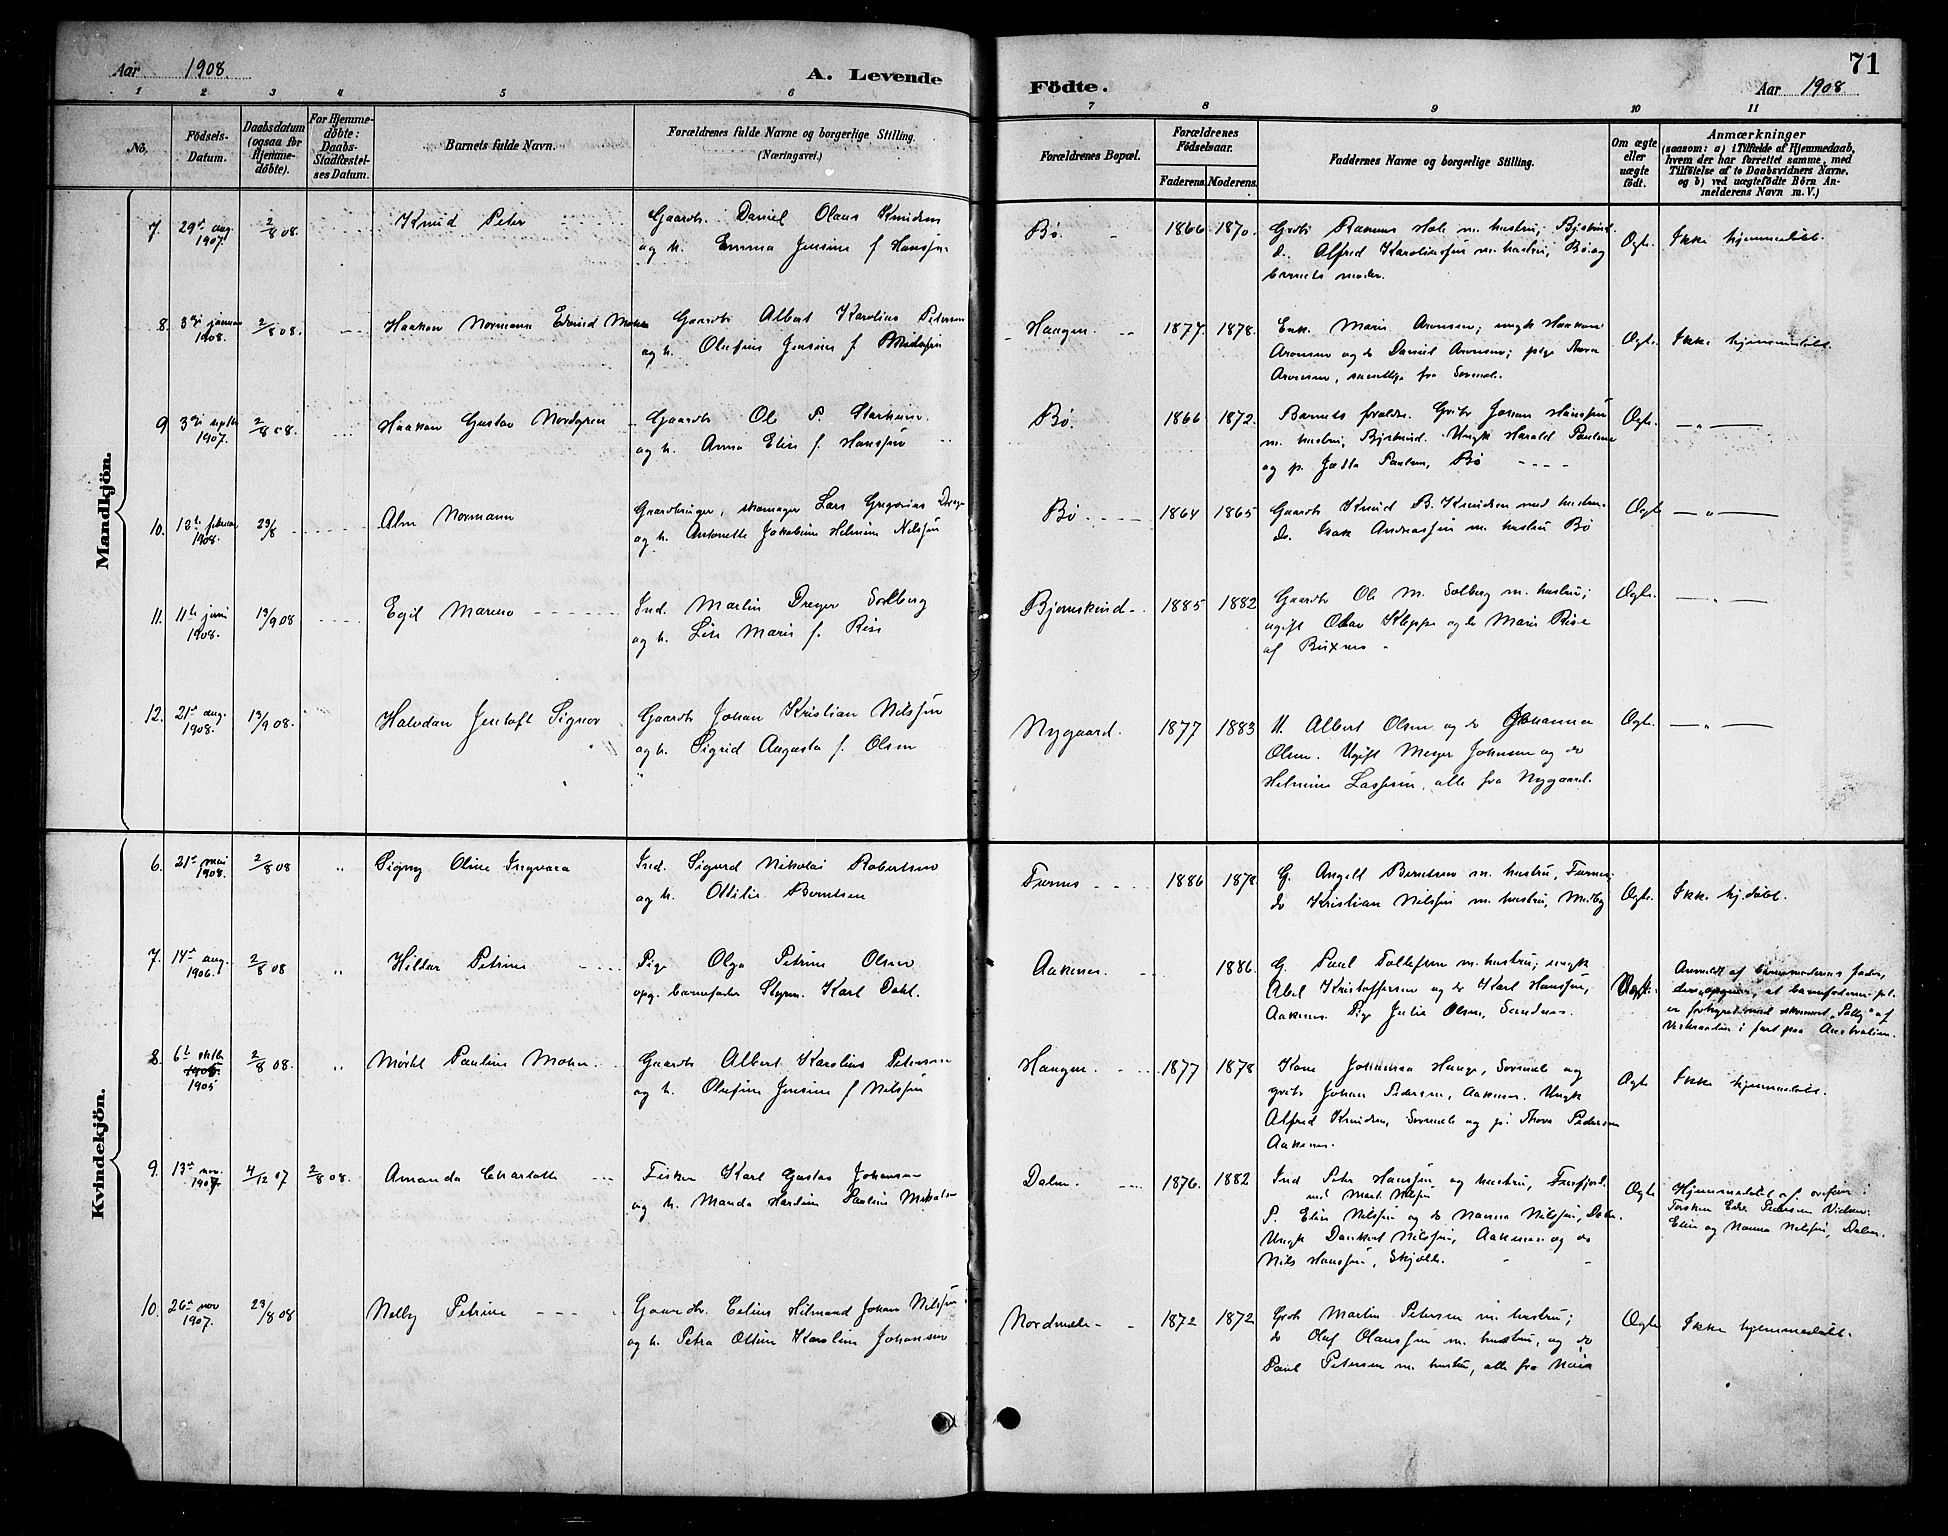 Aar 1908.
A. Levende
Födte.
71
Aar 1908
1 2 3 4 5 6
7 8 9 10 11
No.
Födsels-
Datum.
Daabsdatum
(ogsaa for
Hjemme-
döbte).
For Hjemme-
döbte:
Daabs-
Stadfæstel-
ses Datum.
Barnets fulde Navn.
Forældrenes fulde Navne og borgerlige Stilling.
(Næringsvei.)
Forældrenes Bopæl.
Forældrenes
Födselsaar.
Faderens. Moderens.
Faddernes Navne og borgerlige Stilling.
Om ægte
eller
uægte
født.
Anmærkninger
(saasom: a) i Tilfælde af Hjemmedaab,
hvem der har forrettet samme, med
Tilföielse af to Daabsvidners Navne,
og b) ved uægtefödte Börn An-
melderens Navn m. V.)
Mandkjön.
7. 29de aug. 1907. 2/8 08. Knud Peter
Gaardb. Daniel Olaus Knudsen
og h. Emma Jensine f Hanssen
Bø. 1866 1870.
Grdb. Rasmus Hole m. hustru, Bjørkind
do. Alfred Karoliussen m. hustru, Bø og
barnets moder.
Ægte. Ikke hjemmedøbt.
8. 3die januar 1908. 2/8 08. Haakon Normann Edvind
Gaardb. Albert Karolius Petersen
og h. Olufine Jensine f.
Haugen. 1877. 1878.
Enk. Marie Aronsen; ungk Haakon
Aronsen og do Daniel Aronsen; pige Thora
Aronsen, samtlige fra
Ægte. Ikke hjemmedøbt.
9 3die septbr 1907. 2/8 08. Haakon Gustav Nordgren
Gaardb. Ole P. Starheim
og h. Anna Elise f. Hanssen
Bø. 1866 1872.
Barnets forældre. Grdbr Johan Hanssen
m. hustru, Bjørkind. Ungk Harald Paulsen
og p. Paulsen, Bø
Ægte. — " —
10. 12te februar 1908. 23/8 Alm Normann
Gaardbruger, skomager Lars Gregorius Dreyer
og h. Antonette Jakobine Helmine Nilssen
Bø 1864 1865
Gaardb. Knud B. Knudsen med hustru
do. Isak Andreassen m. hustru Bø
Ægte — " —
11. 11te juni 1908. 13/9 08 Egil Mareno
Ind. Martin Dreyer Solberg
og h. Lise Marie f. Rise
Bjørnskind 1885 1882
Gaardb Ole M. Solberg m. hustru;
ugift Olav Kleppe og do Marie Rise
af Buxnes
Ægte. — " —
12. 21de aug. 1908. 13/9 08. Halvdan Jentoft Signor
Gaardb. Johan Kristian Nilssen
og h. Sigrid Augusta f. Olsen
"
Nygaard. 1877 1883
U. Albert Olsen og do Johanna
Olsen. Ugift Meyer Johnsen og do
Helmine Lassesen, alle fra Nygaard.
Ægte. — " —
Kvindekjön.
6. 21de mai 1908. 2/8 08 " Signy Oline Ingvara
Ind. Sigurd Nikolai Robertsen
og h. Ottilie Berntsen
Fornes 1886 1878.
G. Angell Berntsen m. hustru, Fornes;
do Kristian Nilssen m. hustru, Melby
Ægte. Ikke hj.døbt.
7. 14de aug. 1906. 2/8 08 " Hildur Petrine
Pige Olga Petrine Olsen
opg. barnefader Styrm. Karl Dahl.
Aaknes. 1886.
G. Paul Tollefsen m. hustru; ungk
Abel Kristoffersen og do Karl Hanssen,
Aaknes. Pige Julie Olsen, Sandnes.
Uægte. Anmeldt af barnemoderens fader,
der opgiver, at barnefaderen
er forhyret med
i fart paa Australien.
8. 6te 1905 2/8 08. " Pauline
Gaardb Albert Karolius Petersen
og h. Olufine Jensine f Nilssen
Haugen 1877 1878
Kone Johanna Hauge, og
grdbr Johan Pedersen, Aaknes. Ungk
Alfred Knudsen, og p. Thora Pedersen
Aaknes.
Ægte Ikke hjemmedøbt.
9. 13de nov. 1907 4/12 07 2/8 08. Amanda Charlotte
Fisker Karl Gustav Johansen
og h. Manda Hardine Pauline
Dalen 1876. 1882
Ind Peter Hanssen og hustru, Forfjord.
P. Elise Nilssen og do Nanna Nilssen, Dalen.
Ungk Dankert Nilssen, Aaknes og do
Nils Hanssen,
Ægte Hjemmedøbt af
Pedersen Vidner:
Elise og Nanna Nilssen, Dalen.
10. 26de nov 1907. 23/8 08 Nelly Petrine
Gaardbr. Celius Hilmand Johan Nilssen
og h. Petra Ottine Karoline Johansen
Nordmela 1872 1872
Grdb Martin Petersen m. hustru;
do Olaf Olaussen m. hustru, og do
Paul Petersen m. hustru, alle fra
Ægte Ikke hjemmedøbt.